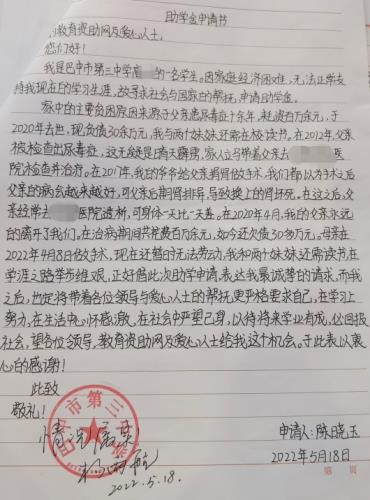 助学金申请书
教育资助网及爱心人士,
您们好!
我是巴中市第三中学高 的一名学生。因家庭经济困难,无法正常支
持我现在的学习生涯,故寻求社会与国家的帮扶,申请助学金。
家中的主要贫困原因来源于父亲患尿毒症十余年,耗费百万余元,于
2020年去世,现负债30余万元,我与两个妹妹还需在校读书。在2012年父亲
被检查出尿毒症,这无疑是日晴天霹雳,家人立马带着父亲去 医
院检查并治疗。在2017年,我的爷爷给父亲捐肾做手术,我们都以为手术之后
父亲的病会越来越好,可父亲后期肾排异,导致换上的肾坏死。在这之后,父
亲经常去 医院透析,可身体一天比一天差。在2020年4月,我的父亲永远
的离开了我们。在治病期间共花费百万余元,如今还欠债30多万元。母亲在
2022年4月8日做手术,现在还暂时无法劳动,我和两个妹妹还需读书在
学涯之路举步维艰,正好借此次助学申请,表达我最诚挚的请求,而我
之后,也定将带着各位领导与爱心人士的帮扶,更严格要求自己,在学习上
努力,在生活中心怀感激,在社会中严望己身,以待将来学业有成,必回报
社会,望各位领导,教育资助网及爱心人士给我这个机会,于此表以衷
心的感谢!
此致
敬礼!
巴中市第三中学
情况属实
申请人:陈晓玉
2022年5月18日
2022.5.18.
第 页